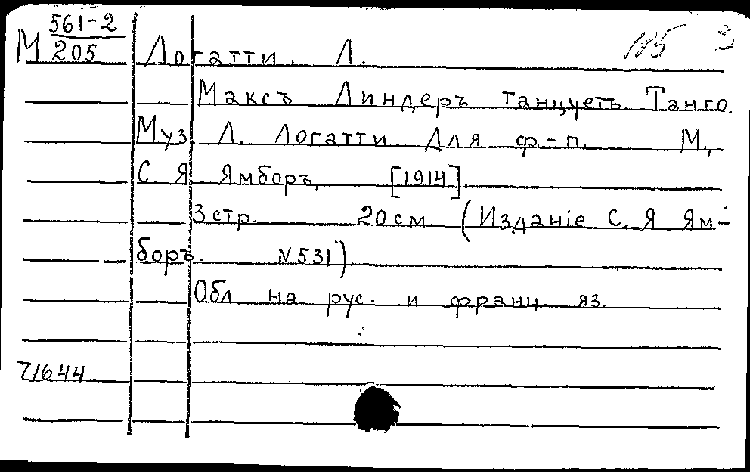 М 561-2
205 Логатти. Л. 
Максъ Линдеръ танцуетъ. Танго.
Муз. Л. Логатти. Для ф-п. М.,
С. Я. Ямборъ, [1914].
3 стр. 20 см. (Изданіе С. Я. Ям-
боръ. N 531)
Обл. на рус. и франц. яз.
71644